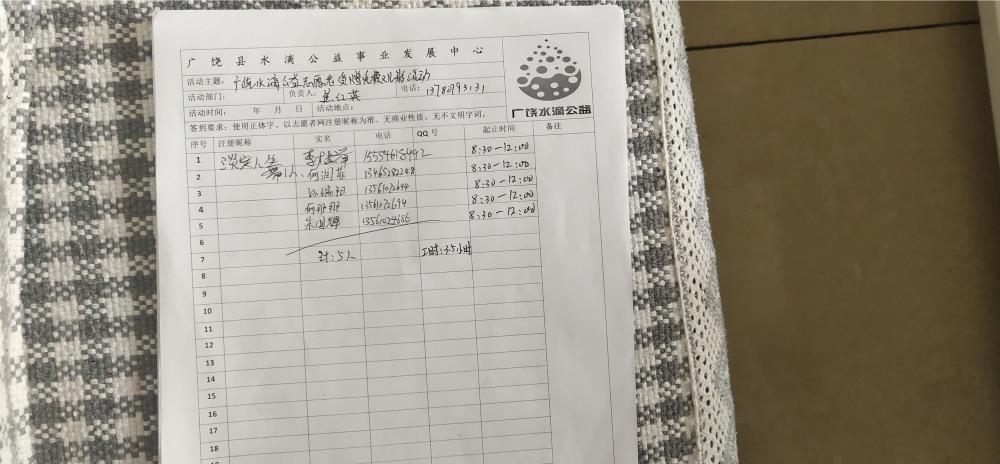 广饶县水滴公益事业发展中心
广饶水滴公益
活动主题：广饶水滴公益志愿者
活动部门： 负责人： 电话：13780793131
活动时间： 年 月 日 活动地点：
签到要求：使用正体字，以志愿者网注册昵称为准、无商业性质、无不文明字词。
序号 注册昵称 实名 电话 QQ号 起止时间 备注
1 淡定人生 8:30-12:00
2 何润菲 13465282248 8:30-12:00
3 8:30-12:00
4 何那那 13561072694 8:30-12:00
5 朱国辉 13561024686 8:30-12:00
6
7 计：5人 工时：3.5小时
8
9
10
11
12
13
14
15
16
17
18